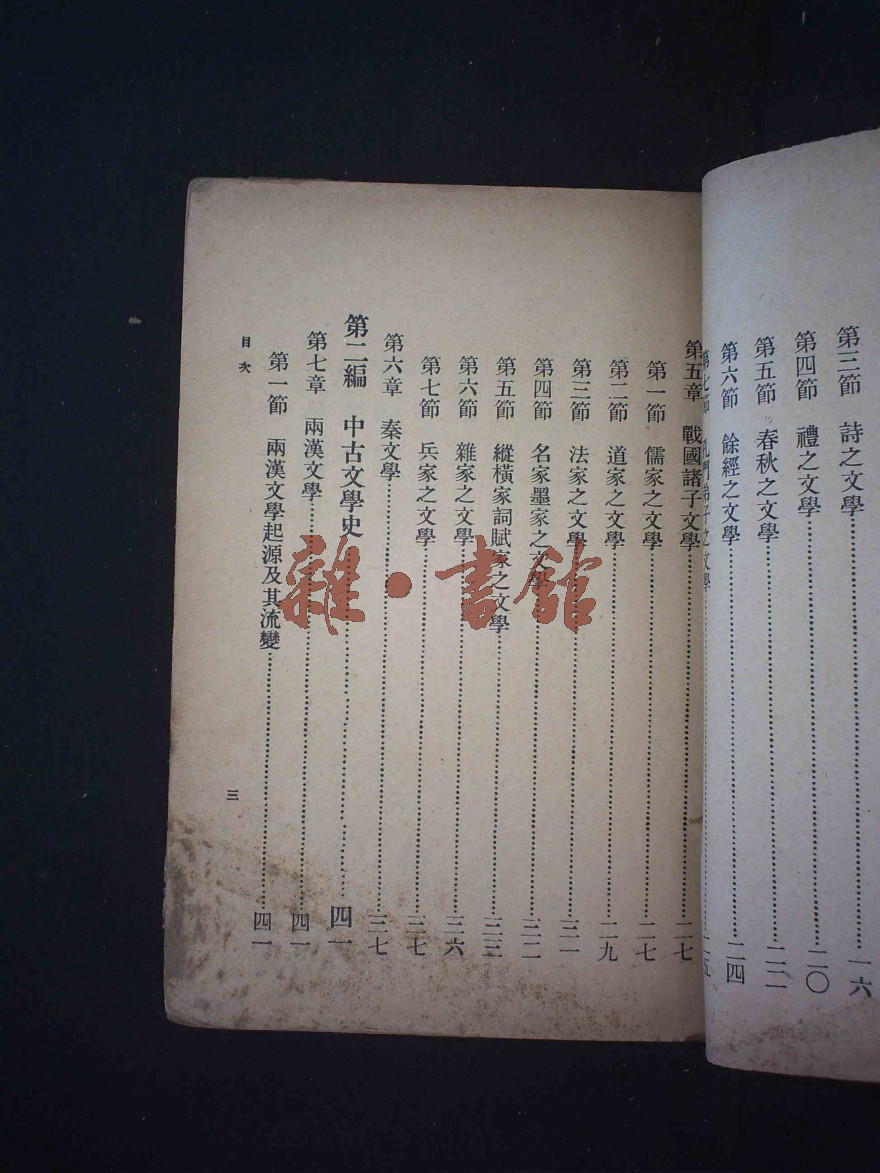 第三節 詩之文學……一六
第四節 禮之文學……二〇
第五節 春秋之文學……二二
第六節 餘經之文學……二四
第七節 孔門弟子之文學……二五
第五章 戰國諸子文學……二七
第一節 儒家之文學……二七
第二節 道家之文學……二九
第三節 法家之文學……三一
第四節 名家墨家之文學……三二
第五節 縱橫家詞賦家之文學……三三
第六節 雜家之文學……三六
第七節 兵家之文學……三七
第六章 秦文學……三七
第二編 中古文學史……四一
第七章 兩漢文學……四一
第一節 兩漢文學起源及其流變……四一
目次
三
雜·書館